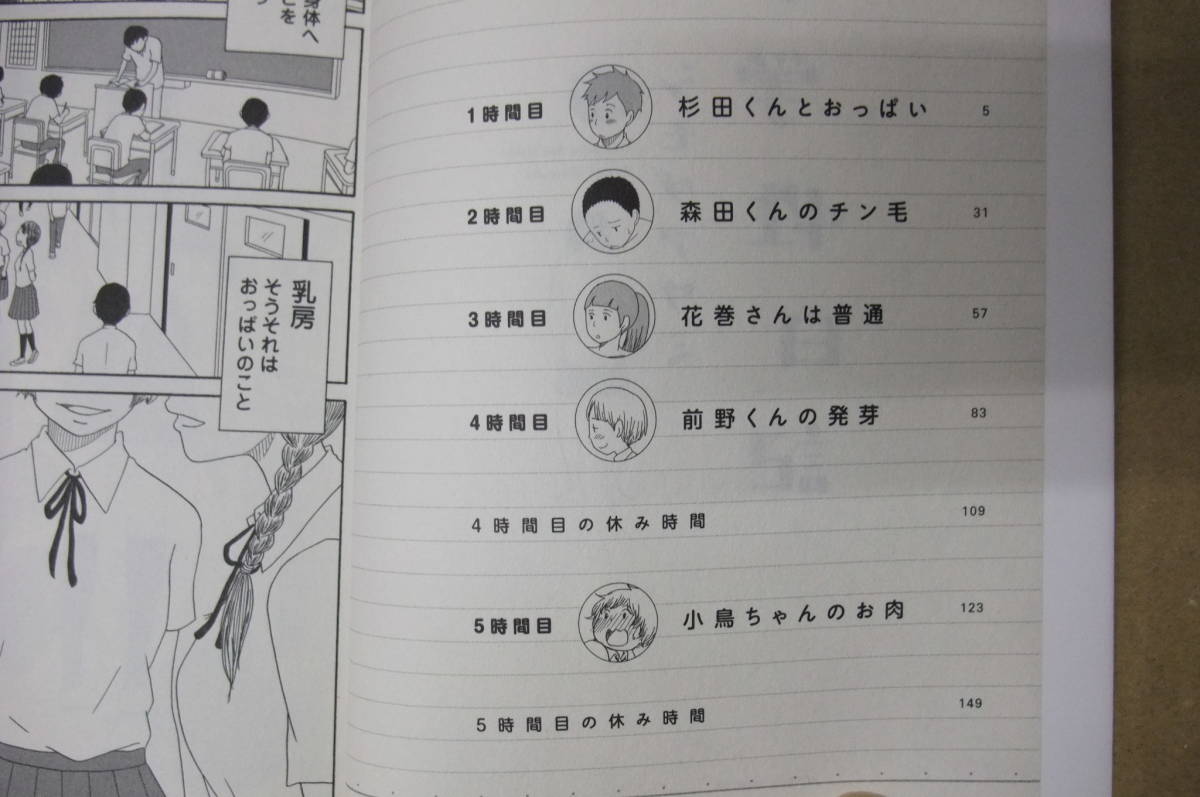 身体へ
乳房
そうそれは
おっぱいのこと
1時間目 杉田くんとおっぱい 5
2時間目 森田くんのチン毛 31
3時間目 花巻さんは普通 57
4時間目 前野くんの発芽 83
4時間目の休み時間 109
5時間目 小鳥ちゃんのお肉 123
5時間目の休み時間 149